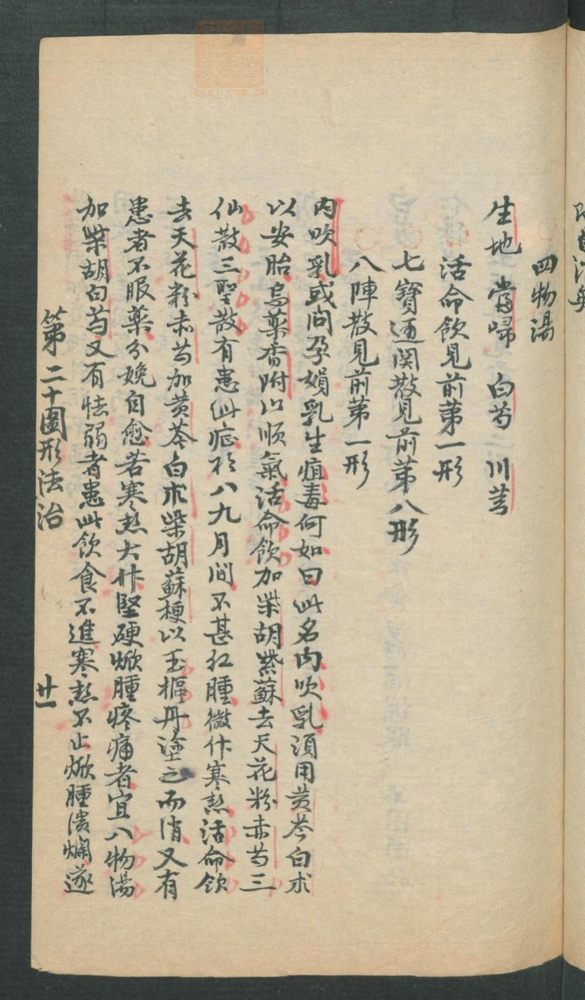 四物湯
生地 當歸 白芍 川芎
活命飲見前第一形
七寶通関散見前第八形
八陣散見前第一形
内吹乳或问孕婦乳生疽毒何如曰此名内吹乳須用黄芩白朮
以安胎烏藥香附以順氣活命飲加柴胡紫蘇去天花粉赤芍三
仙散三聖散有患此症於八九月间不甚红腫微作寒热活命飲
去天花粉赤芍加黄芩白朮柴胡蘇梗以玉樞丹塗之而消又有
患者不服藥分娩自愈若寒热大作堅硬焮腫疼痛者宜八物湯
加柴胡白芍又有怯弱者患此飲食不進寒热不止焮腫潰爛遂
第二十圖形法治
廿一